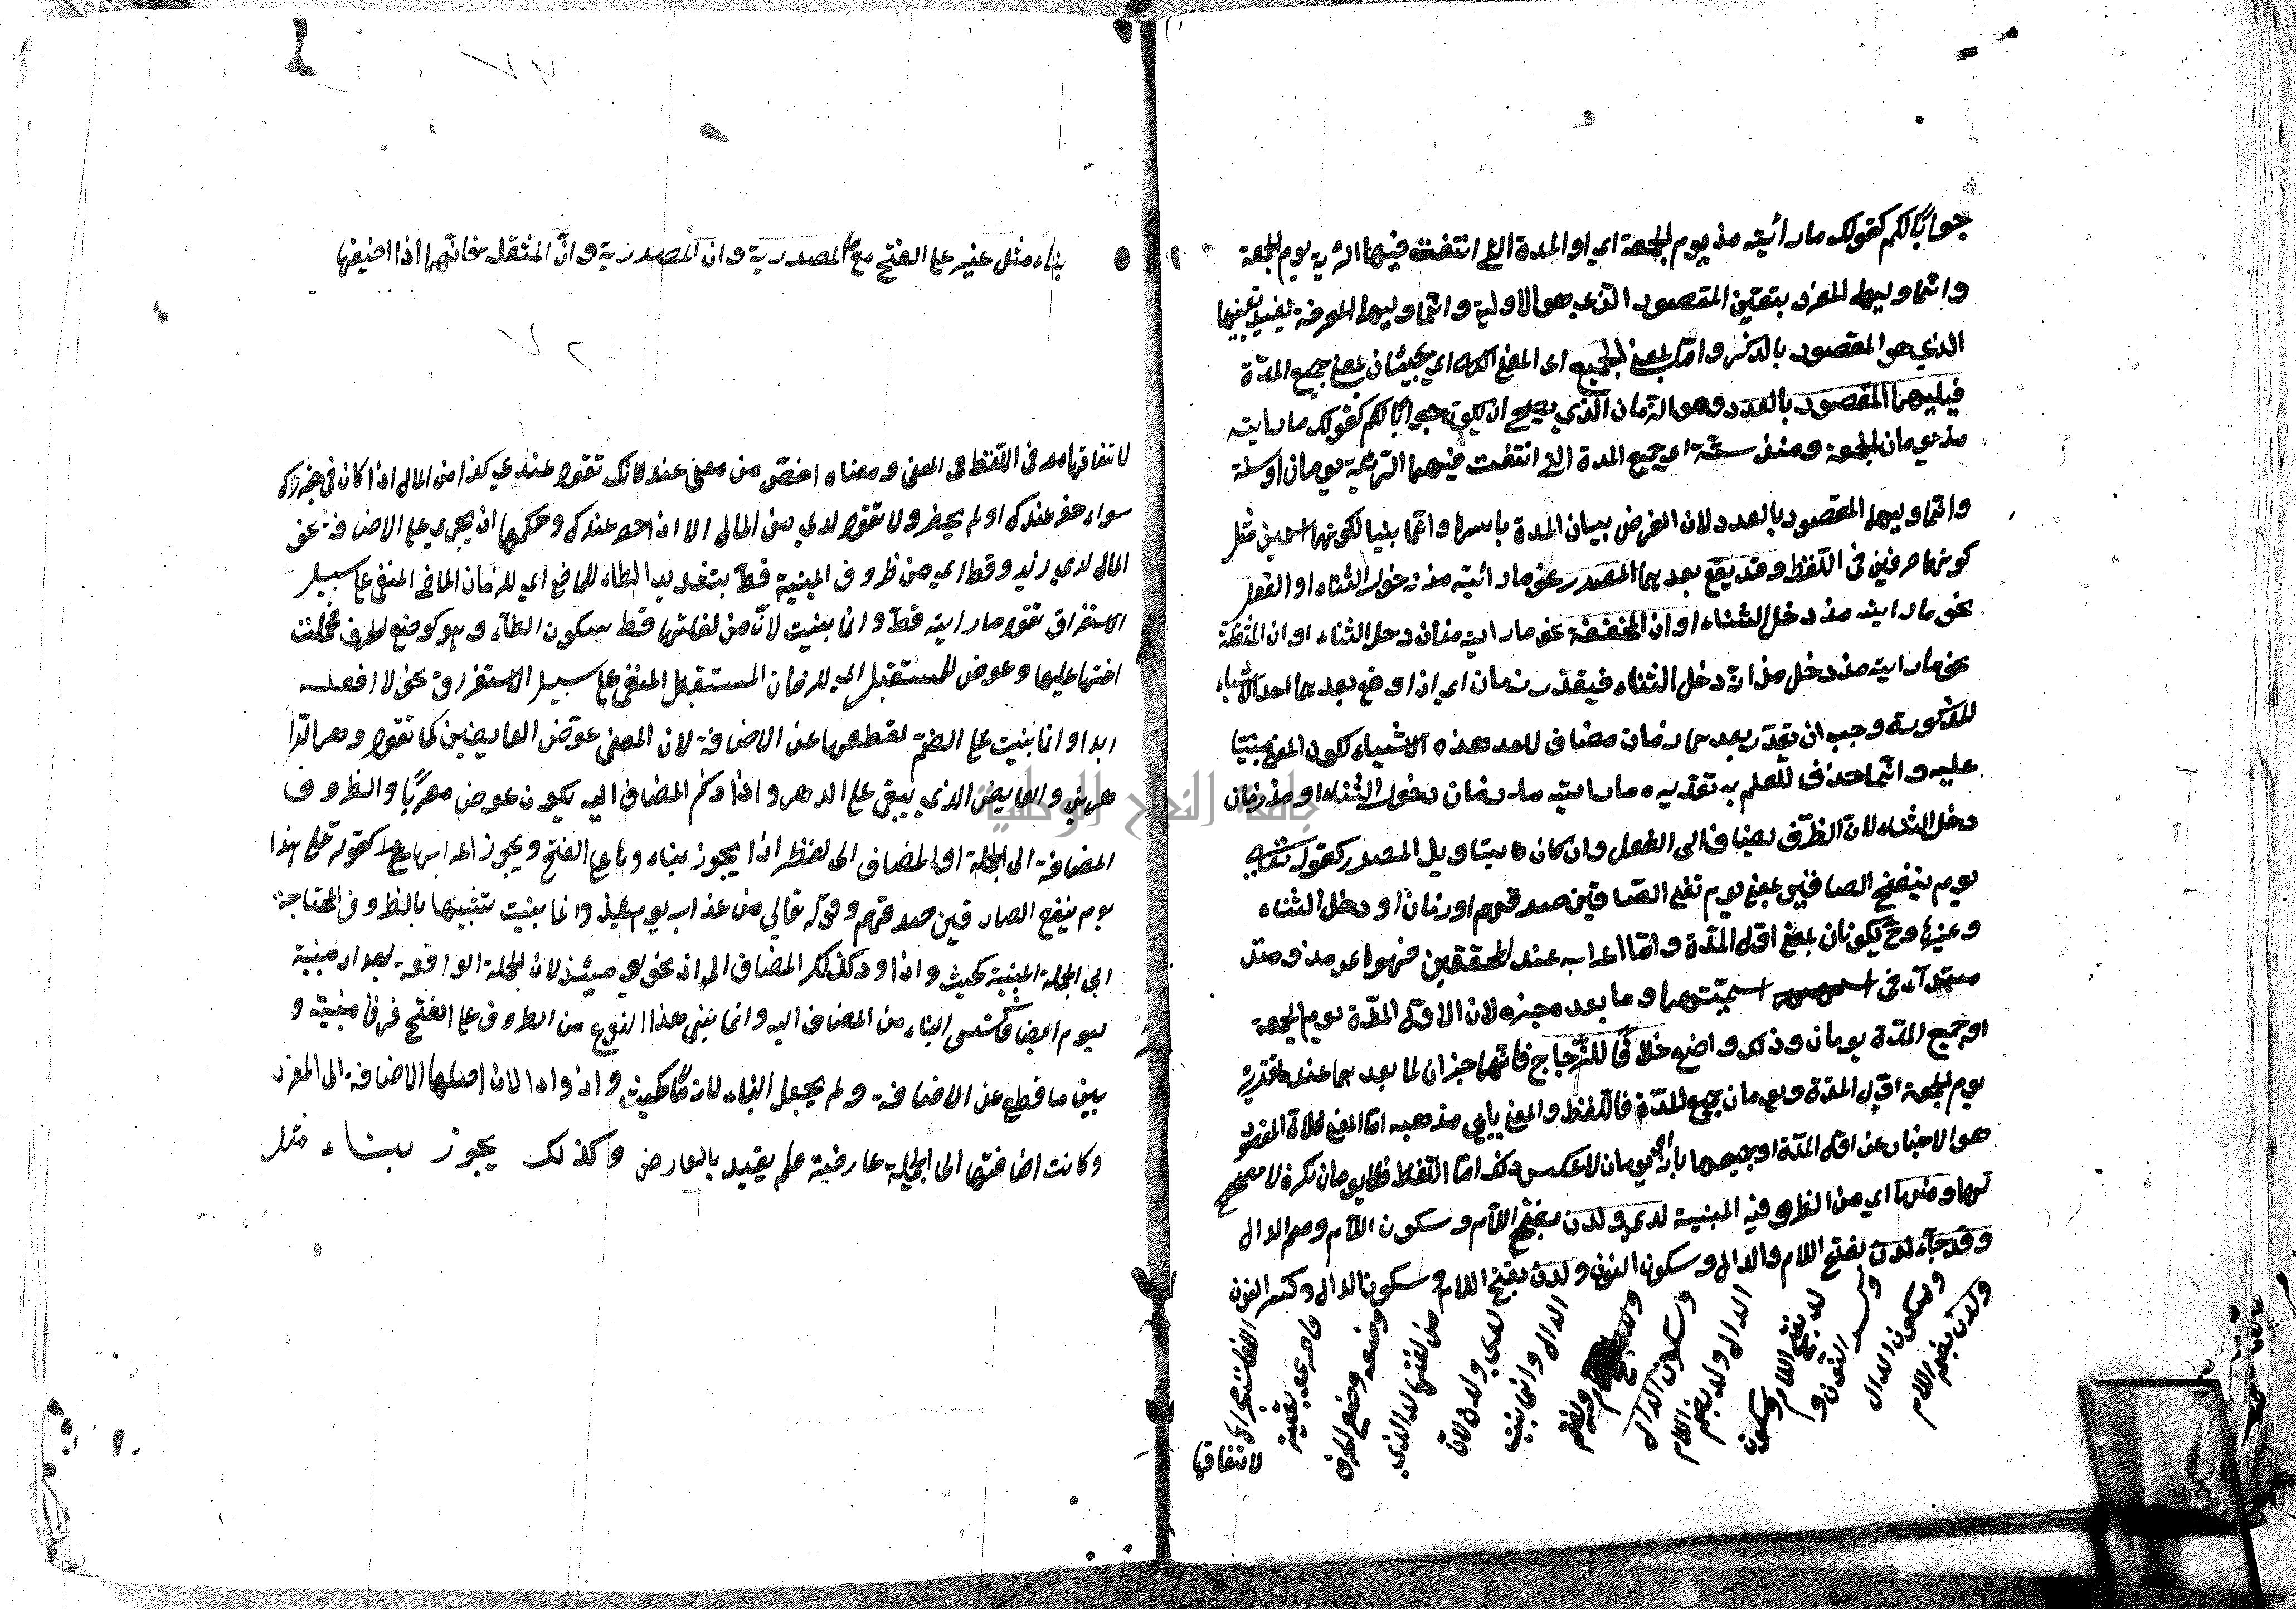 جوابًا لكم كقولك ما رأيته مذ يوم الجمعة اي او المدة التي انتفت فيها الرؤية يوم الجمعة
وانما وليها المفرد بتعين المقصود الذي هو الاولية وانما وليها المعرفة ليفيد تعينها
الذي هو المقصود بالذكر وامّا بمعنى الجميع اي المعنى اي يجيئان بمعنى جميع المدّة
فيليهما المقصود بالعدد وهو الزمان الذي يصلح ان يكون جوابًا لكم كقولك ما رايته
مذ يومان الجمعة ومنذ سنة اي جميع المدة التي انتفت فيهما الرؤية يومان او سنة
وانما وليها المقصود بالعدد لان الغرض بيان المدة باسرها وانما بنيا لكونهما اسمين مثل
كونهما حرفين في اللفظ وقد يقع بعدهما المصدر نحو ما رائيته مذ دخول الشتاء او الفعل
نحو ما رايته مذ دخل الشتاء او ان المخففة نحو ما رايته مذ ان دخل الشتاء او ان المثقلة
نحو ما رايته مذ دخل مذ انّ دخل الشتاء فيقدر زمان اي اذا وقع بعدهما احد الاشياء
المذكورة وجب ان يقدّر بعدهما زمان مضاف لاحد هذه الاشياء لكون المعنى مبنيا
عليه وانما حذف للعلم به تقديره ما رايته مذ زمان دخول الشتاء او مذ زمان
دخل الشتاء لانّ الظرف يضاف الى الفعل وان كان بتاويل المصدر كقوله تعالى
يوم ينفع الصادقين بمعنى يوم نفع الصّادقين صدقهم او زمان او دخل الشتاء
وغيرها وح يكونان بمعنى اوّل المدّة وامّا اعرابه عند المحققين فهو اعر مذ ومنذ
مبتدآء في اسميّتهما وما بعده خبره لان الاوّل المدّة يوم الجمعة
او جميع المدّة يومان وذلك واضح خلافًا للزّجاج فانّهما خبران لما بعدهما عنده فتقديره
يوم الجمعة اوّل المدّة ويومان جميع المدّة فاللفظ والمعنى يابى مذهبه امّا المعنى فلانّ المقصود
هو الاخبار عن اوّل المدّة او جميعها بانه يومان لا عكس ذلك امّا اللفظ فلان يومان نكرة لا مصحح
لها ومنها اي من الظروف المبنية لدى ولدن بفتح اللام وسكون اللام وضم الدال
وقد جاء لدن بفتح اللام والدال وسكون النون ولدن بفتح اللام وسكون الدال وكسر النون
ولدن بضم اللام
وسكون الدال
وكسر النون و
لد بفتح اللام وسكون
الدال ولد بضم اللام
وسكون الدال
الدال وانما بنيت
لدى ولدن لان
من لغتها لد الذي
وضعه وضع الحرف
لاتفاقها
بناء مثل غير على الفتح مع ما المصدرية وان المصدرية وانّ المثقلة فانّهما اذا اضيفا
لاتفاقها معه في اللفظ في المعنى ومعناه اخصّ من معنى عند لانك تقول عندي كذا من المال اذا كان في حيزك
سواء حضر عندك او لم يحضر ولا تقول لدي من المال الا اذا حضر عندك وحكمها ان يجري على الاضافة نحو
المال لدي زيد وقط اي من ظروف المبنية قطّ بتشديد الطاء للماضي اي للزمان الماضي المنفي على سبيل
الاستغراق تقول ما رايته قطّ وانما بنيت لانّ من لغاتها قط بسكون الطآء وهو كوضع الحرف فحملت
اختها عليها وعوض للمستقبل اي للزمان المستقبل المنفي على سبيل الاستغراق نحو لا افعله
ابدا وانما بنيت على الضم لقطعها عن الاضافة لان المعنى عوض العايضين كما تقول دهر الدا
هرين والعايض الذي يبقى على الدهر واذا ذكر المضاف اليه يكون عوض معربًا والظروف
المضافة الى الجملة او المضاف الى لفظ اذ يجوز بناءوها على الفتح ويجوز اعرابها كقوله تعالى هذا
يوم ينفع الصادقين صدقهم وقوله تعالى من عذاب يومئذ وانما بنيت تشبيها بالظروف المحتاجة
الى الجملة المبنية كحيث واذا وكذلك المضاف الى اذ نحو حينئذ لان الجملة الواقعة بعد اذ مبنية
ليوم ايضا فاكتسى البناء من المضاف اليه وانما بنى هذا النوع من الظروف على الفتح فرقا مبنية و
بين ما قطع عن الاضافة ولم يجعل البناء لازمًا كحيث واذ واذا لان اصلها الاضافة الى المفرد
وكانت اضافتها الى الجملة عارضية فلم يقيد بالعارض وكذلك يجوز بناء مثل
جامعة النجاح الوطنية